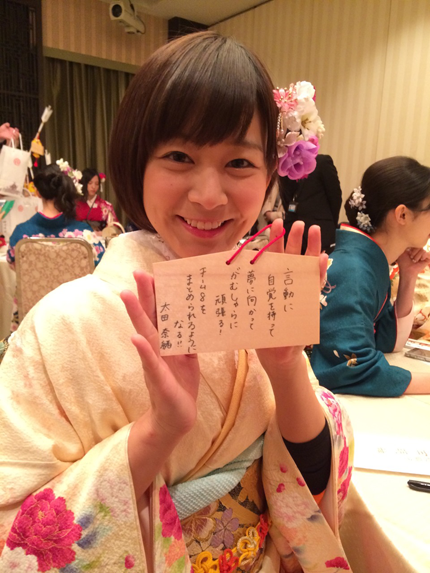 言動に
自覚を持って
夢に向かって
がむしゃらに
頑張る!
チーム8を
まとめられるように
なる!!
太田 奈緒